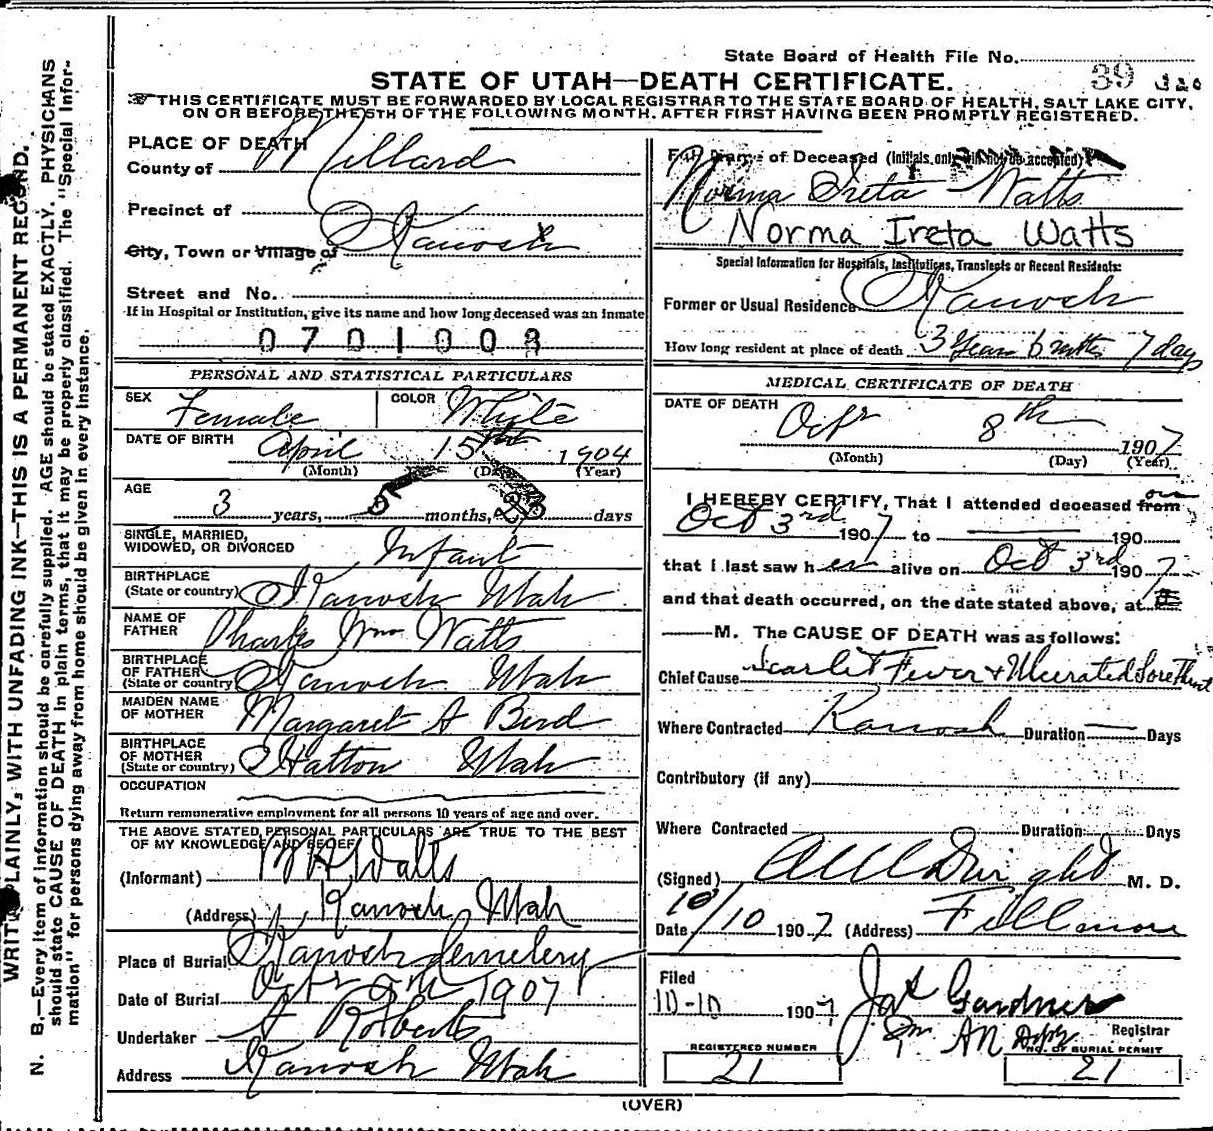 State Board of Health File No.
39
STATE OF UTAH—DEATH CERTIFICATE.
THIS CERTIFICATE MUST BE FORWARDED BY LOCAL REGISTRAR TO THE STATE BOARD OF HEALTH, SALT LAKE CITY,
ON OR BEFORE THE 5TH OF THE FOLLOWING MONTH, AFTER FIRST HAVING BEEN PROMPTLY REGISTERED.
WRITE PLAINLY, WITH UNFADING INK—THIS IS A PERMANENT RECORD.
N. B.—Every item of information should be carefully supplied. AGE should be stated EXACTLY. PHYSICIANS
should state CAUSE OF DEATH in plain terms, that it may be properly classified. The "Special Infor-
mation" for persons dying away from home should be given in every instance.
PLACE OF DEATH
County of Millard
Precinct of
City, Town or Village of Kanosh
Street and No.
If in Hospital or Institution, give its name and how long deceased was an Inmate
0701003
PERSONAL AND STATISTICAL PARTICULARS
SEX Female COLOR White
DATE OF BIRTH April 15th 1904
(Month) (Day) (Year)
AGE
3 years, 5 months, days
SINGLE, MARRIED,
WIDOWED, OR DIVORCED Infant
BIRTHPLACE
(State or country) Kanosh Utah
NAME OF
FATHER Charles Wm Watts
BIRTHPLACE
OF FATHER
(State or country) Kanosh Utah
MAIDEN NAME
OF MOTHER Margaret A Bird
BIRTHPLACE
OF MOTHER
(State or country) Hatton Utah
OCCUPATION
Return remunerative employment for all persons 10 years of age and over.
THE ABOVE STATED PERSONAL PARTICULARS ARE TRUE TO THE BEST
OF MY KNOWLEDGE AND BELIEF
(Informant) Watts
(Address) Kanosh, Utah
Place of Burial Kanosh Cemetery
Date of Burial 1907
Undertaker A Roberts
Address Kanosh Utah
Full Name of Deceased (Initials only will not be accepted)
Norma Ireta Watts
Norma Ireta Watts
Special Information for Hospitals, Institutions, Transients or Recent Residents:
Former or Usual Residence Kanosh
How long resident at place of death 3 Years 6 mths 7 days
MEDICAL CERTIFICATE OF DEATH
DATE OF DEATH Octr 8th 1907
(Month) (Day) (Year)
I HEREBY CERTIFY, That I attended deceased from on
Oct 3rd 1907 to 190
that I last saw her alive on Oct 3rd 1907
and that death occurred, on the date stated above, at
M. The CAUSE OF DEATH was as follows:
Chief Cause Scarlet Fever & Ulcerated Sore Throat
Where Contracted Kanosh Duration Days
Contributory (if any)
Where Contracted Duration Days
(Signed) Dwight M. D.
Date 10/10 1907 (Address) Fillmore
Filed
10-10 1907 Jas Gardner
Registrar
REGISTERED NUMBER
21
NO. OF BURIAL PERMIT
21
(OVER)